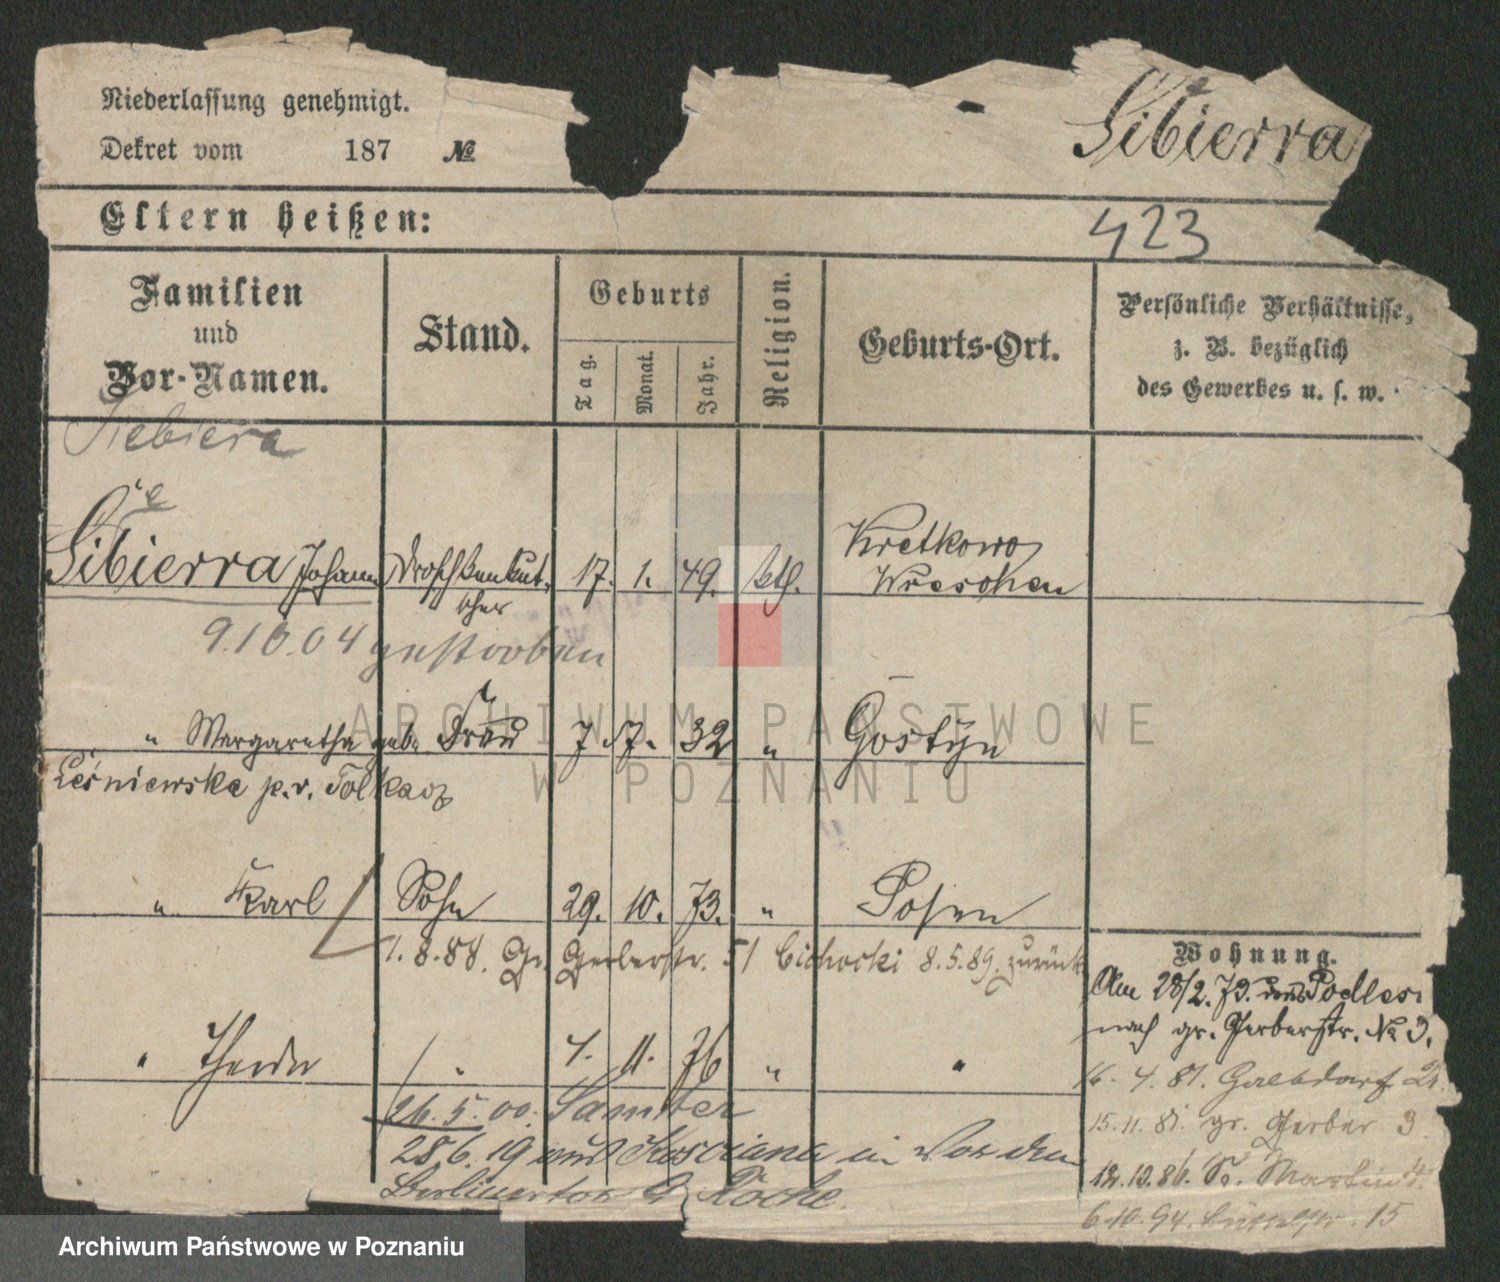 Niederlassung genehmigt.
Dekret vom 187 №
Sibierra
Eltern heißen:
423
Familien
und
Vor-Namen.
Stand.
Geburts
Tag.
Monat.
Jahr.
Religion.
Geburts-Ort.
Persönliche Verhältnisse,
z. B. bezüglich
des Gewerbes u. s. w.
Siebiera
ie
Sibierra Johann Droschkenkut- 17. 1. 49. kth. Kretkowo
scher Wreschen
9.10.04 gestorben
" Margaretha geb. Frau 7 17. 32 " Gostyn
Leśniewska
" Karl Sohn 29. 10. 73. " Posen
1.8.88. Gr. Gerberstr. 51 Cichocki 8.5.89. zurück
" " 11. 76 " "
26.5.00. Samter
28 6. 19 aus in
Wohnung.
Am 28/2. 79. Podlesi
nach gr. Gerberstr. № 3.
4. 81.
15.11.81. gr. Gerber 3
12.10.86. St. Martin
6.10.94. 15
ARCHIWUM PAŃSTWOWE
W POZNANIU
Archiwum Państwowe w Poznaniu